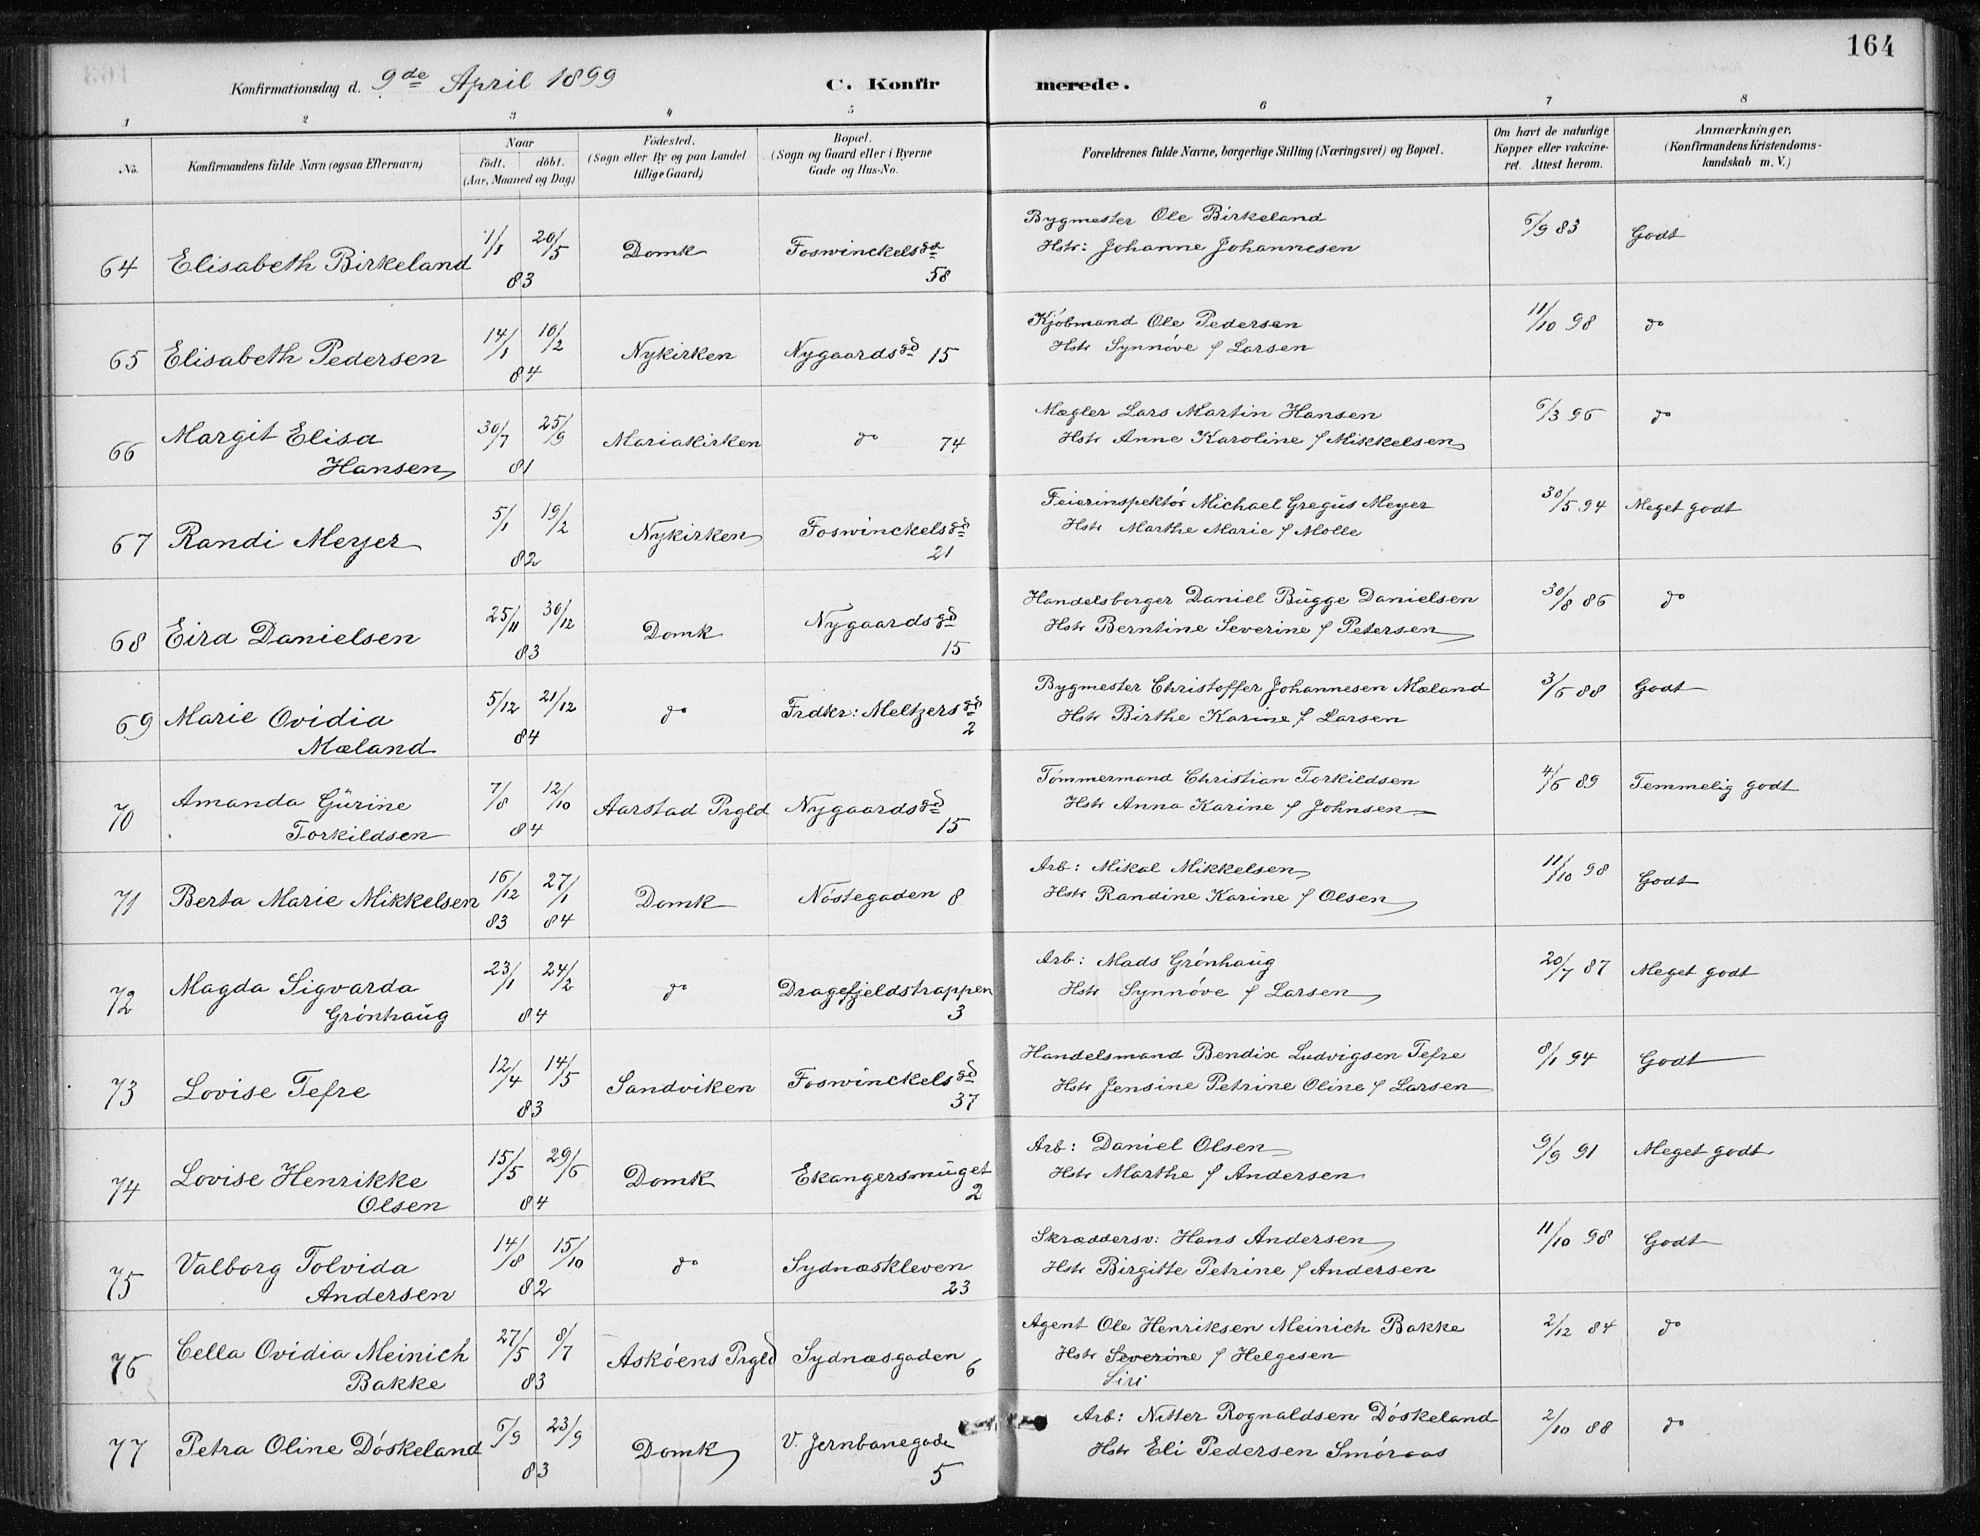 164
Konfirmationsdag d. 9de April 1899 C. Konfirmerede.
1 2 3 4 5 6 7 8
No. Konfirmandens fulde Navn (ogsaa Efternavn) Naar födt. döbt. (Aar, Maaned og Dag) Födested. (Sogn eller By og paa Landet tillige Gaard) Bopæl. (Sogn og Gaard eller i Byerne Gade og Hus-No. Forældrenes fulde Navne, borgerlige Stilling (Næringsvei) og Bopæl. Om havt de naturlige Kopper eller vakcineret. Attest herom. Anmærkninger, (Konfirmandens Kristendomskundskab m. V.)
64 Elisabeth Birkeland 1/1 20/5 83 Domk Foswinckelsgd 58 Bygmester Ole Birkeland 6/9 83 Godt
Hstr: Johanne Johannesen
65 Elisabeth Pedersen 14/1 10/2 84 Nykirken Nygaardsgd 15 Kjöbmand Ole Pedersen 11/10 98 do
Hstr Synnöve f Larsen
66 Margit Elisa Hansen 30/7 25/9 81 Mariakirken do 74 Mægler Lars Martin Hansen 6/3 96 do
Hstr Anne Karoline f Mikkelsen
67 Randi Meyer 5/1 19/2 82 Nykirken Foswinckelsgd 21 Feierinspektör Michael Gregus Meyer 30/5 94 Meget godt
Hstr Marthe Marie f Molle
68 Eira Danielsen 25/11 30/12 83 Domk Nygaardsgd 15 Handelsborger Daniel Bugge Danielsen 30/8 86 do
Hstr Berntine Severine f Petersen
69 Marie Ovidia Mæland 5/12 21/12 84 do Frdkr: Meltzersgd 2 Bygmester Christoffer Johannesen Mæland 3/6 88 Godt
Hstr Birthe Karine f Larsen
70 Amanda Gurine Torkildsen 7/8 12/10 84 Aarstad Prgld Nygaardsgd 15 Tömmermand Christian Torkildsen 4/6 89 Temmelig godt
Hstr Anna Karine f Johnsen
71 Berta Marie Mikkelsen 16/12 83 27/1 84 Domk Nöstegaden 8 Arb: Mikal Mikkelsen 11/10 98 Godt
Hstr Randine Karine f Olsen
72 Magda Sigvarda Grönhaug 23/1 24/2 84 do Dragefjeldstrappen 3 Arb: Mads Grönhaug 20/7 87 Meget godt
Hstr Synnöve f Larsen
73 Lovise Tefre 12/4 14/5 83 Sandviken Foswinckelsgd 37 Handelsmand Bendix Ludvigsen Tefre 8/1 94 Godt
Hstr Jensine Petrine Oline f Larsen
74 Lovise Henrikke Olsen 15/5 29/6 84 Domk Ekangersmuget 2 Arb: Daniel Olsen 9/9 91 Meget godt
Hstr Marthe f Andersen
75 Valborg Tolvida Andersen 14/8 15/10 82 do Sydnæskleven 23 Skræddersv: Hans Andersen 11/10 98 Godt
Hstr Birgitte Petrine f Andersen
76 Cella Ovidia Meinich Bakke 27/5 8/7 83 Asköens Prgld Sydnæsgaden 6 Agent Ole Henriksen Meinich Bakke 2/12 84 do
Hstr Severine f Helgesen
Siri
77 Petra Oline Döskeland 6/9 23/9 83 Domk V. Jernbanegade 5 Arb: Nitter Rognaldsen Döskeland 2/10 88 do
Hstr Eli Pedersen Smöraas